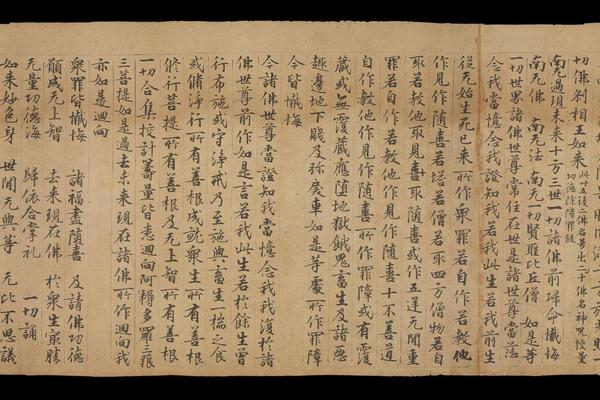 切佛刹相王如來 此廿五後三佛名号出二十佛名神呪校量
功德除障罪經
南无過現未來十方三世一切諸佛前歸命懺悔
南无佛 南无法 南无一切賢聖比丘僧 如是等
一切世界諸佛世尊常住在世是諸世尊當慈
念我當憶念我證知我若我此生若我前生
從无始生死已來所作衆罪若自作若教他
作見作隨喜若塔若僧若取四方僧物若自
取若教他取見取隨喜或作五逆无間重
罪若自作若教他作見作隨喜十不善道
自作教他作見作隨喜所作罪障或有覆
藏或无覆藏應墮地獄餓鬼畜生及諸惡
趣邊地下賤及弥戾車如是等處所作罪障
今皆懺悔
今諸佛世尊當證知我當憶念我我復於諸
佛世尊前作如是言若我此生若於餘生曾
行布施或守淨戒乃至施與畜生一摶之食
或修淨行所有善根成就衆生所有善根
修行菩提所有善根及无上智所有善根
一切合集校計籌量皆悉迴向阿耨多羅三藐
三菩提如是過去未來現在諸佛所作迴向我
亦如是迴向
衆罪皆懺悔 諸福盡隨喜 及請佛功德
願成无上智 去來現在佛 於衆生最勝
无量功德海 歸依合掌礼 一切誦
如來妙色身 世間无與等 无比不思議